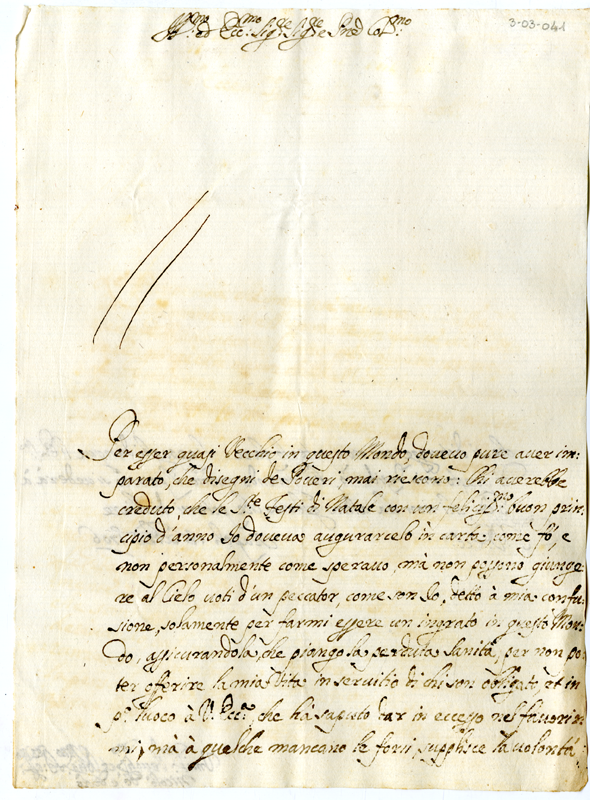 3-03-041
Ill.mo ed Ecc.mo Sig.re Sig.re e Prod Col.mo
Per esser quasi Vecchio in questo Mondo, dovevo pure aver im:
parato, che disegni de Poveri, mai riescono: Chi averebbe
creduto, che le S.te Festi di Natale con un felicis.mo buon prin:
cipio d'anno Io dovevo augurarcelo in carta, come fò, e
non personalmente come speravo, mà non possono giunge
re al Cielo voti d'un peccator, come son Io, detto à mia confu:
sione, solamente per farmi essere un ingrato in questo Mon:
do, assicurandola, che piango la perduta Sanità, per non po
ter offerire la mia Vita in servitio di chi son obligato, et in
p.o luoco à V. Ecc.a, che hà saputo dar in eccesso nel favorir
mi, mà à quel che mancano le forzi, supplisce la volontà